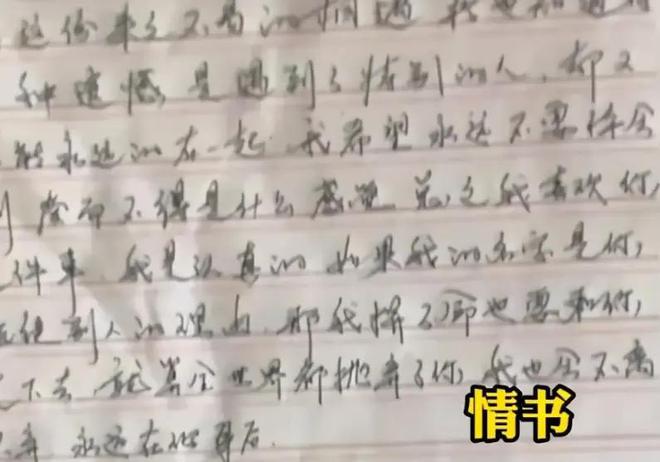 这份来之不易的
种遗憾是遇到了特别的人，却又
能永远的在一起，我希望永远不要体会
爱而不得是什么感觉，总之我喜欢你，
件事，我是认真的，如果我的名字是你，
别人的理由，那我拼了命也要和你，
下去，就算全世界都抛弃了你，我也会不离
弃，永远在你身后.
情书